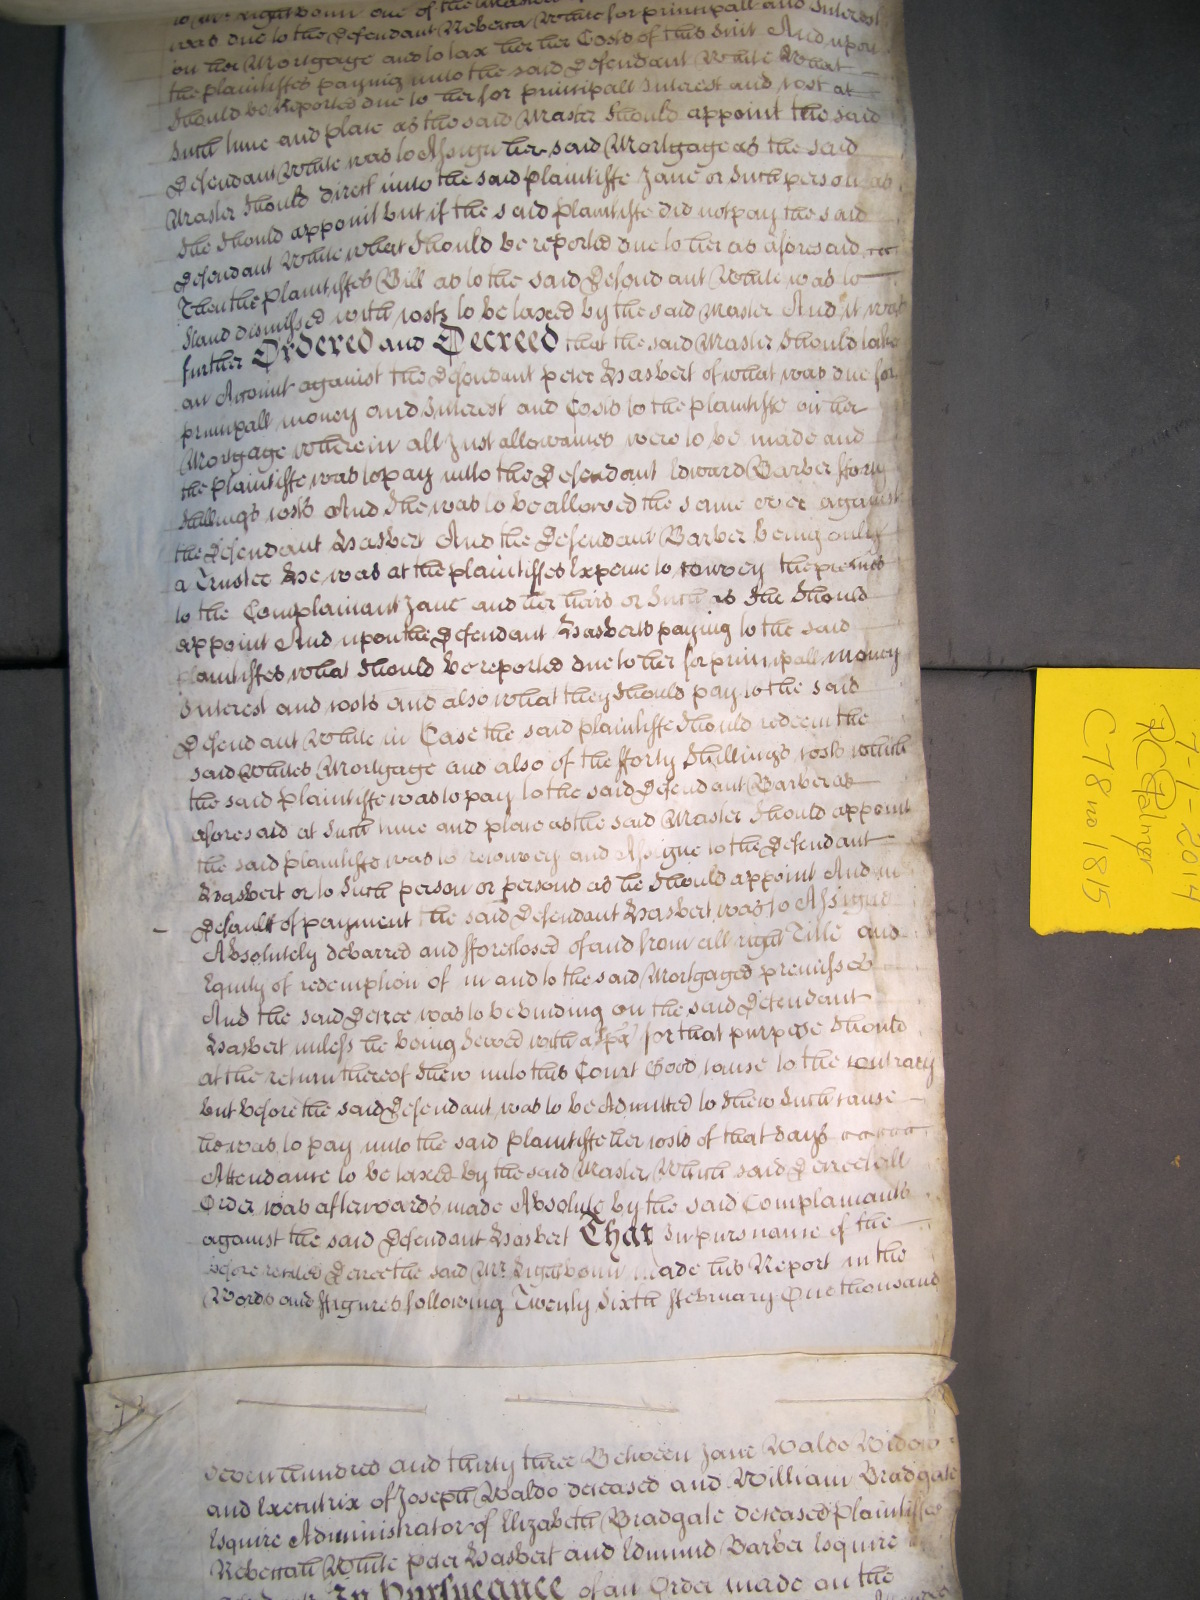 to Mr Lightboun one of the Masters
was due to the Defendant Rebecca White for principall and Interest
on her Mortgage and to tax her her Costs of this Suit And upon
the plaintiffes paying unto the said Defendant White What
Should be Reported due to her for principall Interest and Cost at
Such time and place as the said Master Should appoint the said
Defendant White was to Assign her said Mortgage as the said
Master Should direct unto the said plaintiffe Jane or Such person as
She Should appoint but if the said plaintiffe did not pay the said
Defendant White what Should be reported due to her as aforesaid
Then the plaintiffes Bill as to the said Defendant White was to
Stand dismissed with Costs to be taxed by the said Master And it was
further Ordered and Decreed that the said Master Should take
an Account against the Defendant peter Hasbert of what was due for
principall money and Interest and Costs to the plaintiffe on her
Mortgage wherein all Just allowances were to be made and
the plaintiffe was to pay unto the Defendant Edward Barber fforty
Shillings Costs And She was to be allowed the same over against
the Defendant Hasbert And the Defendant Barber being only
a Trustee He was at the plaintiffes Expence to Convey the premes
to the Complainant Jane and her heirs or Such as She Should
appoint And upon the Defendant Hasberts paying to the said
plaintiffes what Should be reported due to her for principall money
Interest and Costs and also what they Should pay to the said
Defendant White in Case the said plaintiffe Should redeem the
said Whites Mortgage and also of the fforty Shillings Costs which
the said plaintiffe was to pay to the said Defendant Barber as
aforesaid at Such time and place as the said Master Should appoint
the said plaintiffs was to reconvey and Assigne to the Defendant
Hasbert or to Such person or persons as he Should appoint And in
default of payment the said Defendant Hasbert was to Assigne
Absolutely debarred and fforeclosed of and from all right Title and
Equity of redemption of in and to the said Mortgaged premisses
And the said Decree was to be binding on the said Defendant
Hasbert unless he being Served with a Spa for that purpose Should
at the return thereof Shew unto this Court Good Cause to the contrary
but before the said Defendant was to be Admitted to Shew Such Cause
he was to pay unto the said plaintiffe her Costs of that days
Attendance to be taxed by the said Master Which said Decretall
Order was afterwards made Absolute by the said Complainants
against the said Defendant Hasbert That In pursuance of the
before recited Decree the said Mr Lightboun made his Report in the
Words and ffigures following Twenty Sixth ffebruary One thousand
Seven hundred and thirty three Between Jane Waldo Widow
and Executrix of Joseph Waldo deceased and William Bradgate
Esquire Administrator of Elizabeth Bradgate deceased plaintiffes
Rebeccah White peter Hasbert and Edmund Barber Esquire
In Pursueance of an Order made on the
7-1-2014
RCPalmer
C78 no 1815